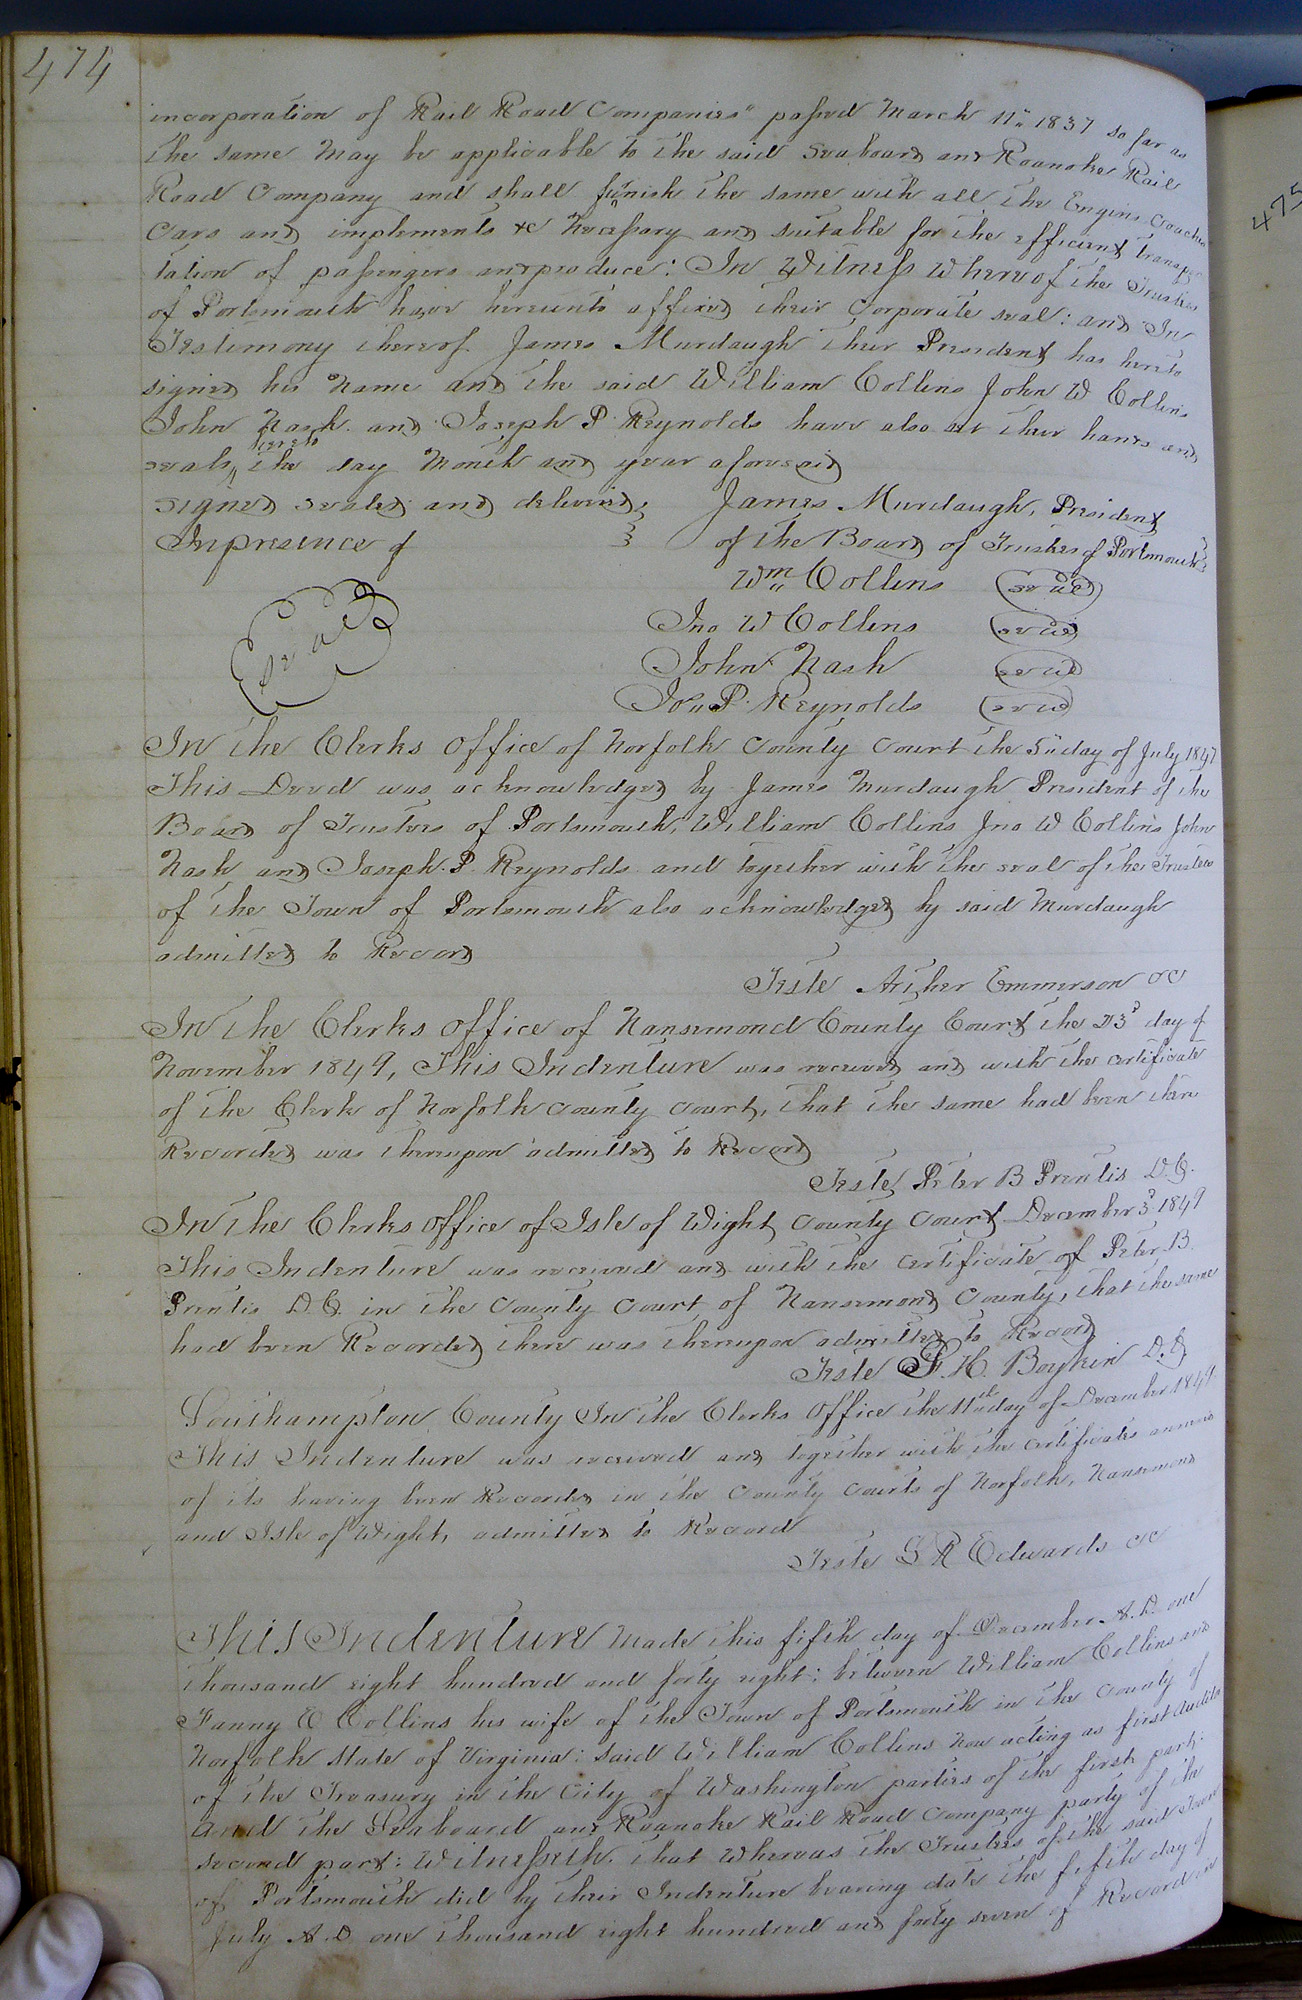 474
incorporation of Rail Road Companies" passed March 11" 1837 so far as
the same may be applicable to the said Seaboard and Roanoke Rail
Road Company and shall furnish the same with all the Engins Coaches
Cars and implements &c Necessary and suitable for the efficient transpor
tation of passengers and produce: In Witness Whereof the Trustees
of Portsmouth have hereunto affixed their Corporate seal: and In
Testimony thereof James Murdaugh their President has hereto
signed his Name and the said William Collins John W Collins
John Nash and Joseph P Reynolds have also set their hands and
hereto
seals, the day Month and year aforesaid
signed sealed and delivered
In presence of
James Murdaugh, President
of the Board of Trustees of Portsmouth
Wm Collins (seal)
Jno W Collins (seal)
John Nash (seal)
Jos P. Reynolds (seal)
Seal
In the Clerks Office of Norfolk County Court the 5" day of July 1847
This Deed was acknowledged by James Murdaugh President of the
Board of Trustees of Portsmouth, William Collins Jno W Collins John
Nash and Joseph P Reynolds and together with the seal of the Trustees
of the Town of Portsmouth also acknowledged by said Murdaugh
admitted to Record
Teste Arther Emmerson CC
In the Clerks Office of Nansemond County Court the 23d day of
November 1849, This Indenture was received and with the certificate
of the Clerk of Norfolk County Court, that the same had been there
Recorded was thereupon admitted to Record
Teste, Peter B Prentis D.C.
In the Clerks Office of Isle of Wight County Court December 3d 1849
This Indenture was received and with the certificate of Peter B.
Prentis D.C. in the County Court of Nansemond County, that the same
had been Recorded there was thereupon admitted to Record
Teste F. H. Boykin D.C.
Southampton County In the Clerks Office the 11th day of December 1849
This Indenture was received and together with the certificates annexed
of its having been Recorded in the County Courts of Norfolk, Nansemond
and Isle of Wight, admitted to Record
Teste L R Edwards CC
This Indenture Made this fifth day of December A.D. one
thousand eight hundred and forty eight: between William Collins and
Fanny E Collins his wife of the Town of Portsmouth in the County of
Norfolk State of Virginia: said William Collins now acting as first Auditor
of the Treasury in the City of Washington parties of the first part:
And the Seaboard and Roanoke Rail Road Company party of the
second part: Witnesseth. that Whereas the Trustees of the said Town
of Portsmouth did by their Indenture bearing date the fifth day of
July A.D. one thousand eight hundred and forty seven of Record in
475